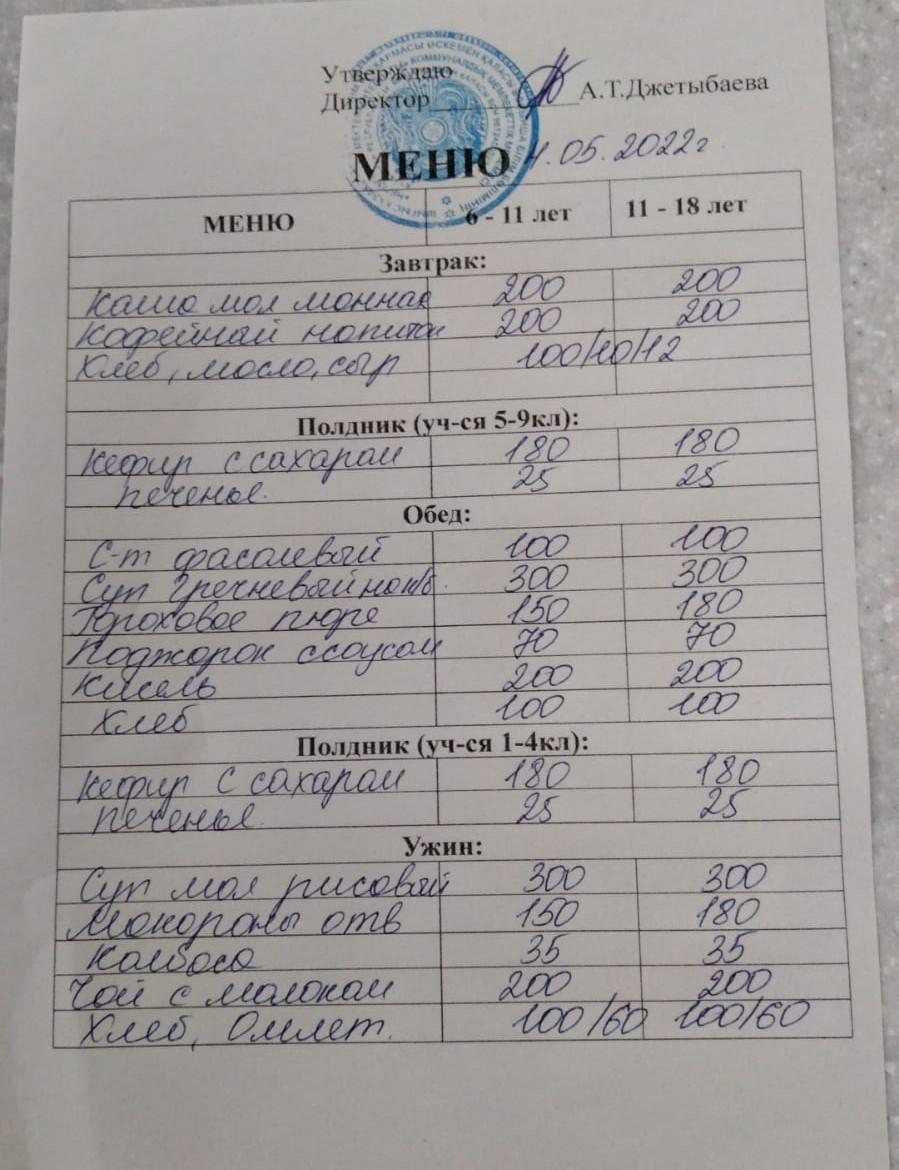 Утверждаю
Директор А.Т.Джетыбаева
МЕНЮ 4.05.2022г
МЕНЮ 6 - 11 лет 11 - 18 лет
Завтрак:
Каша мол манная 200 200
Кофейный напиток 200 200
Хлеб, масло, сыр 100/10/12
Полдник (уч-ся 5-9кл):
Кефир с сахаром 180 180
печенье 25 25
Обед:
С-т фасолевый 100 100
Суп гречневый на к/б 300 300
Гороховое пюре 150 180
Поджарок с соусом 70 70
Кисель 200 200
Хлеб 100 100
Полдник (уч-ся 1-4кл):
Кефир с сахаром 180 180
печенье 25 25
Ужин:
Суп мол рисовый 300 300
Макароны отв 150 180
Колбаса 35 35
Чай с молоком 200 200
Хлеб, Омлет. 100/60 100/60